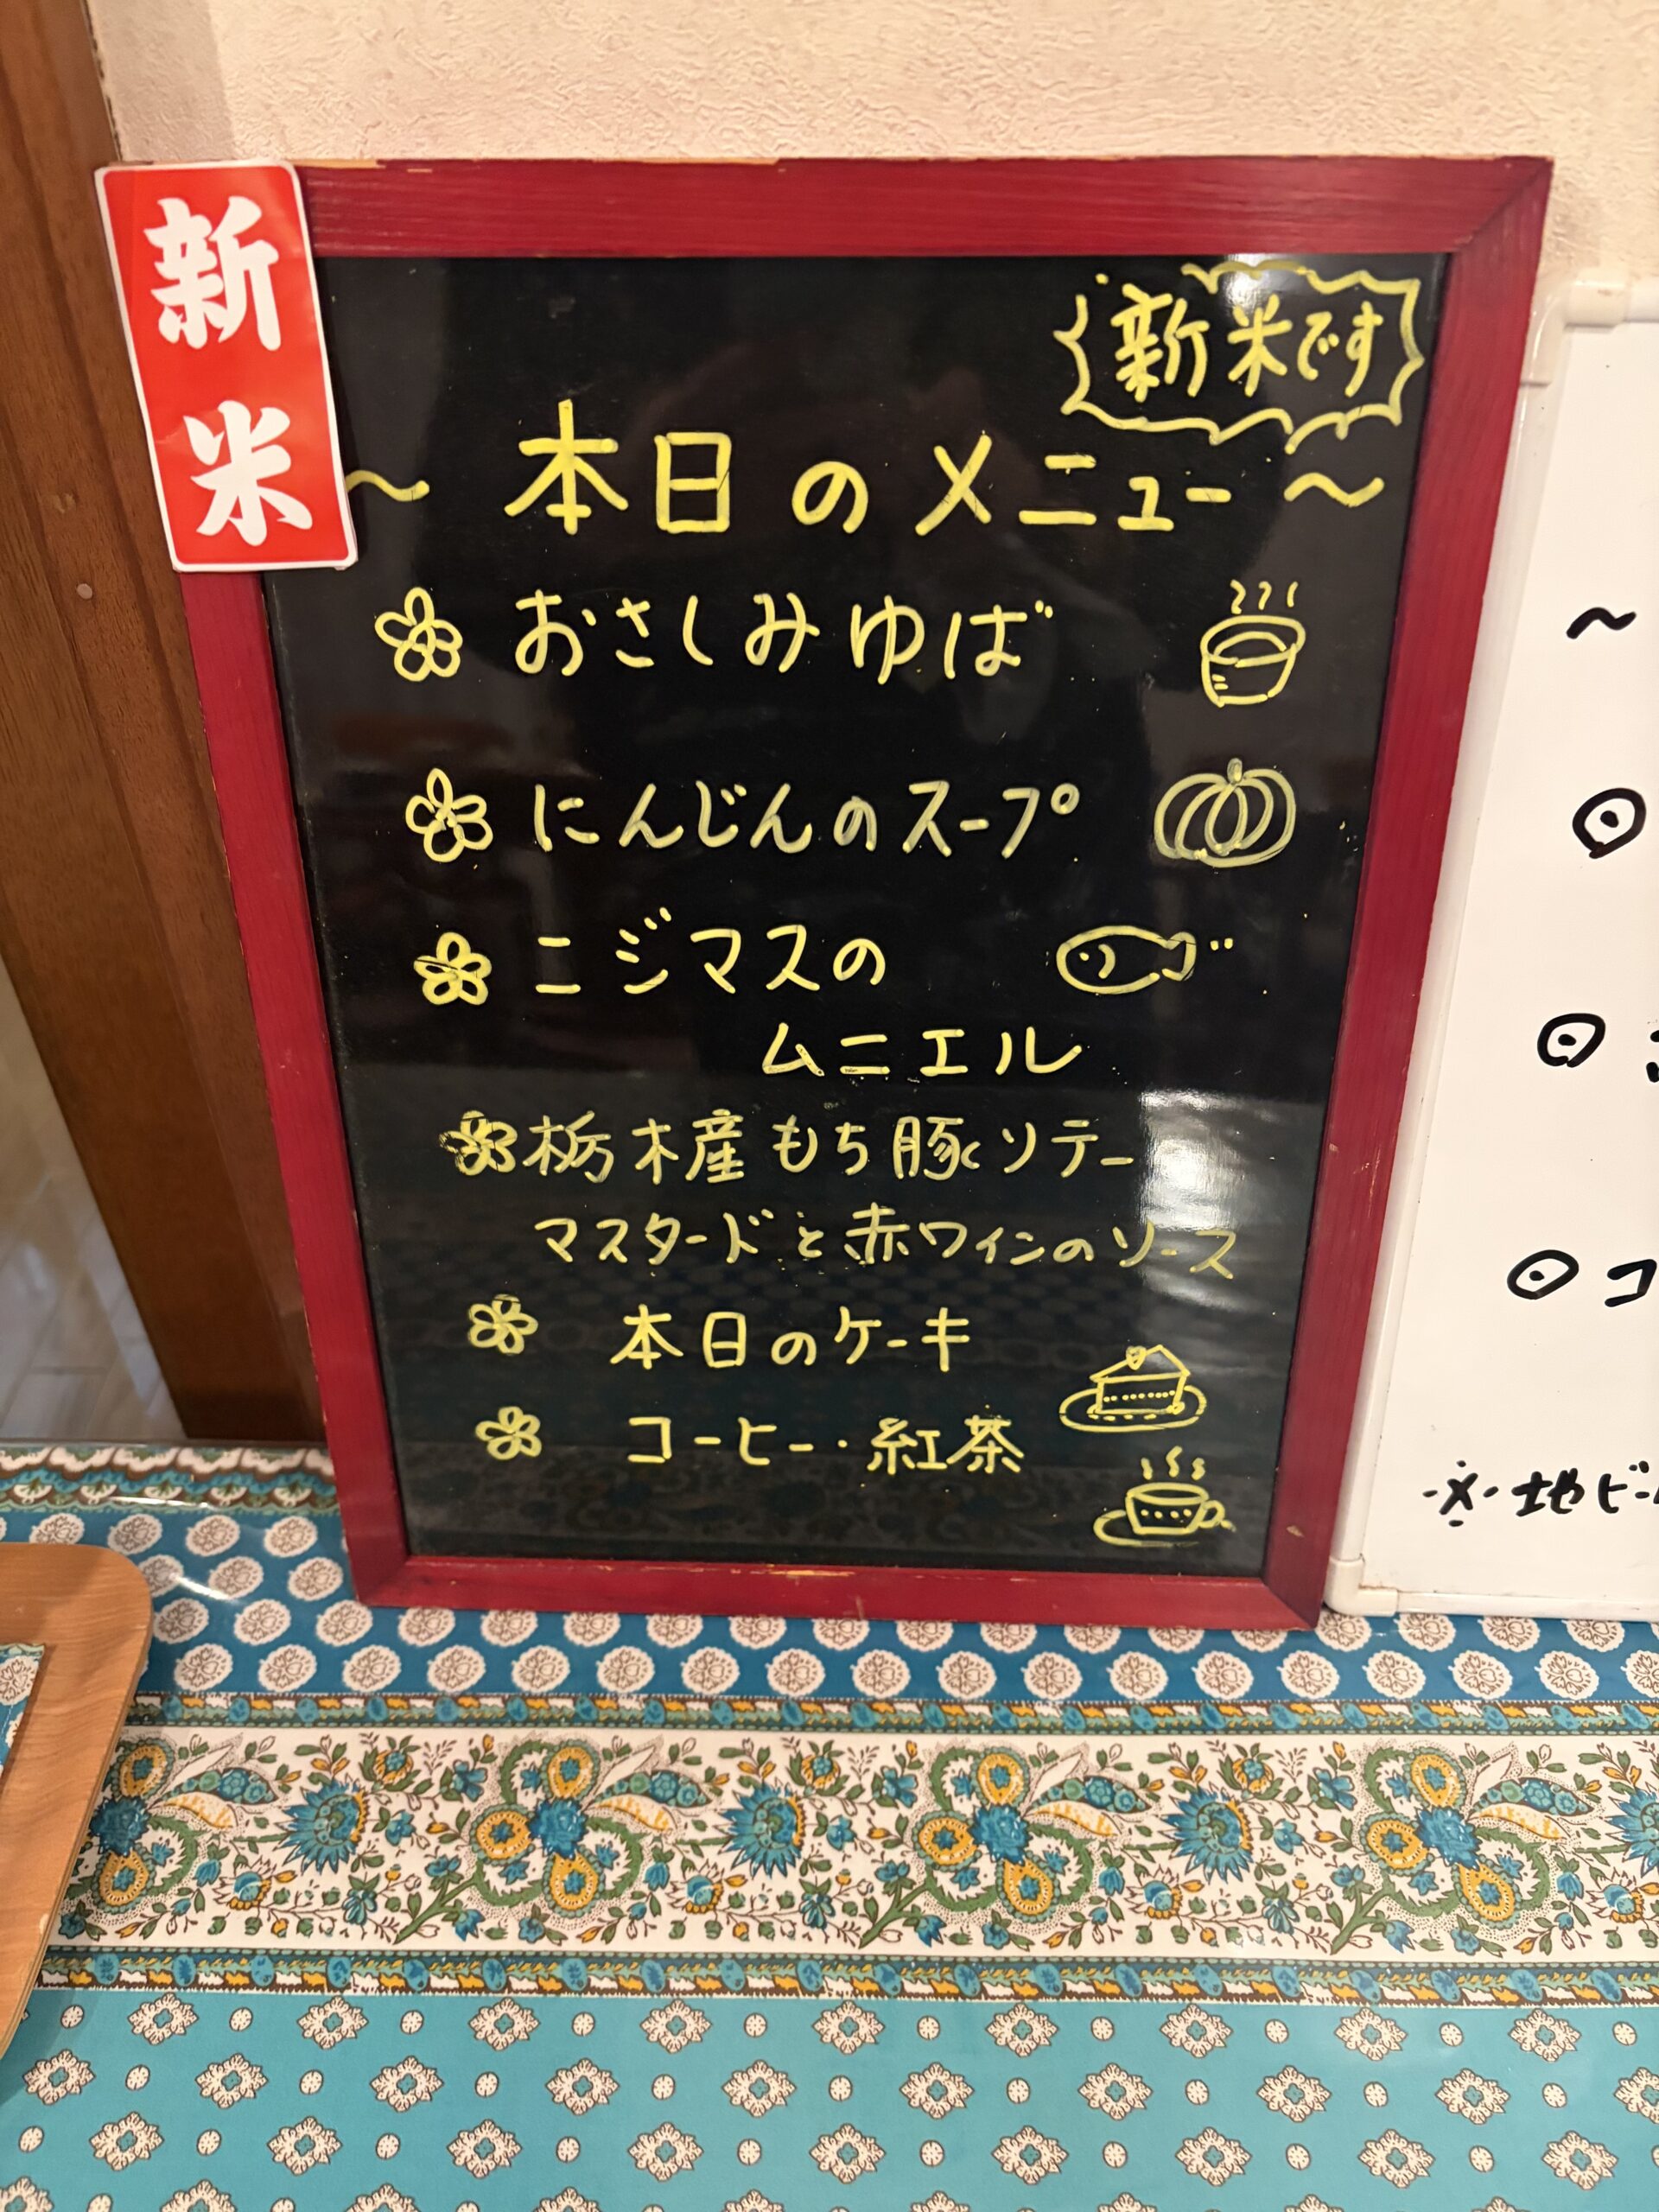 新米
新米です
~ 本日のメニュー ~
おさしみゆば
にんじんのスープ
ニジマスの
ムニエル
栃木産もち豚ソテー
マスタードと赤ワインのソース
本日のケーキ
コーヒー・紅茶
~
コ
※地ビー